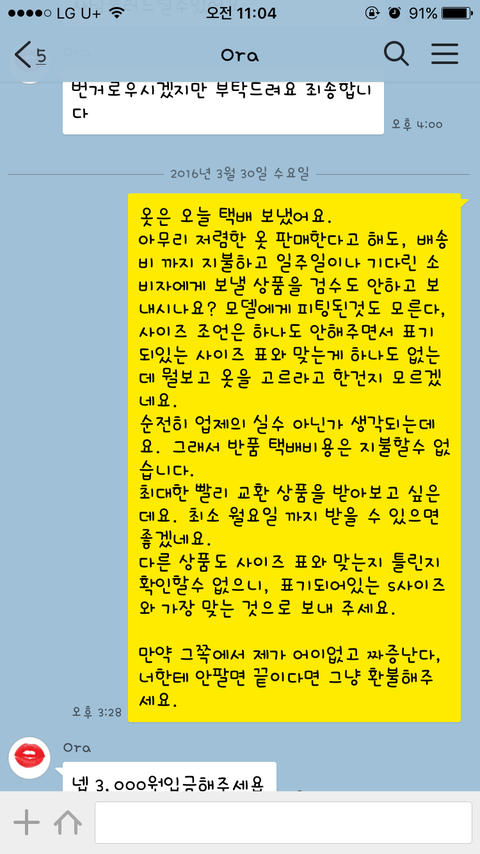 LG U+ 오전 11:04 91%
5 Ora
번거로우시겠지만 부탁드려요 죄송합니
다
오후 4:00
2016년 3월 30일 수요일
옷은 오늘 택배 보냈어요.
아무리 저렴한 옷 판매한다고 해도, 배송
비 까지 지불하고 일주일이나 기다린 소
비자에게 보낼 상품을 검수도 안하고 보
내시나요? 모델에게 피팅된것도 모른다,
사이즈 조언은 하나도 안해주면서 표기
되있는 사이즈 표와 맞는게 하나도 없는
데 뭘보고 옷을 고르라고 한건지 모르겠
네요.
순전히 업체의 실수 아닌가 생각되는데
요. 그래서 반품 택배비용은 지불할수 없
습니다.
최대한 빨리 교환 상품을 받아보고 싶은
데요. 최소 월요일 까지 받을 수 있으면
좋겠네요.
다른 상품도 사이즈 표와 맞는지 틀린지
확인할수 없으니, 표기되어있는 s사이즈
와 가장 맞는 것으로 보내 주세요.
만약 그쪽에서 제가 어이없고 짜증난다,
너한테 안팔면 끝이다면 그냥 환불해주
세요.
오후 3:28
Ora
넵 3,000원입금해주세요